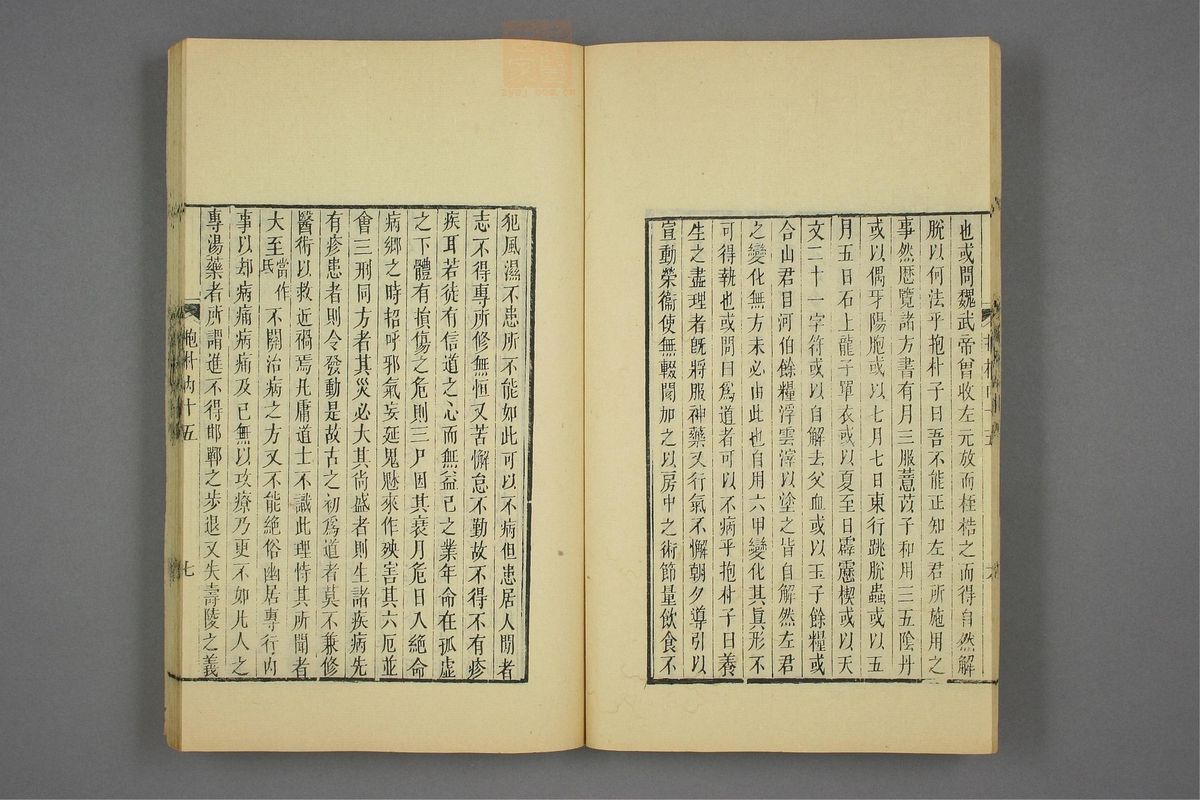 也或問魏武帝曾收左元放而桎梏之而得自然解
脫以何法乎抱朴子曰吾不能正知左君所施用之
事然歴覽諸方書有月三服薏苡子和用三五陰丹
或以偶牙陽胞或以七月七日東行跳脫蟲或以五
月五日石上龍子單衣或以夏至日霹靂楔或以天
文二十一字符或以自解去父血或以玉子餘糧或
合山君目河伯餘糧浮雲滓以塗之皆自解然左君
之變化無方未必由此也自用六甲變化其真形不
可得執也或問曰爲道者可以不病乎抱朴子曰養
生之盡理者旣將服神藥又行氣不懈朝夕導引以
宣動榮衞使無輟閡加之以房中之術節量飲食不
犯風濕不患所不能如此可以不病但患居人閒者
志不得專所修無恒又苦懈怠不勤故不得不有疹
疾耳若徒有信道之心而無益己之業年命在孤虛
之下體有損傷之危則三尸因其衰月危日入絶命
病鄉之時招呼邪氣妄延鬼魅來作殃害其六厄並
會三刑同方者其災必大其尚盛者則生諸疾病先
有疹患者則令發動是故古之初爲道者莫不兼修
醫術以救近禍焉凡庸道士不識此理恃其所聞者
大至當作氐不關治病之方又不能絶俗幽居專行内
事以却病痛病痛及己無以攻療乃更不如凡人之
專湯藥者所謂進不得邯鄲之步退又失壽陵之義
抱朴内十五
七